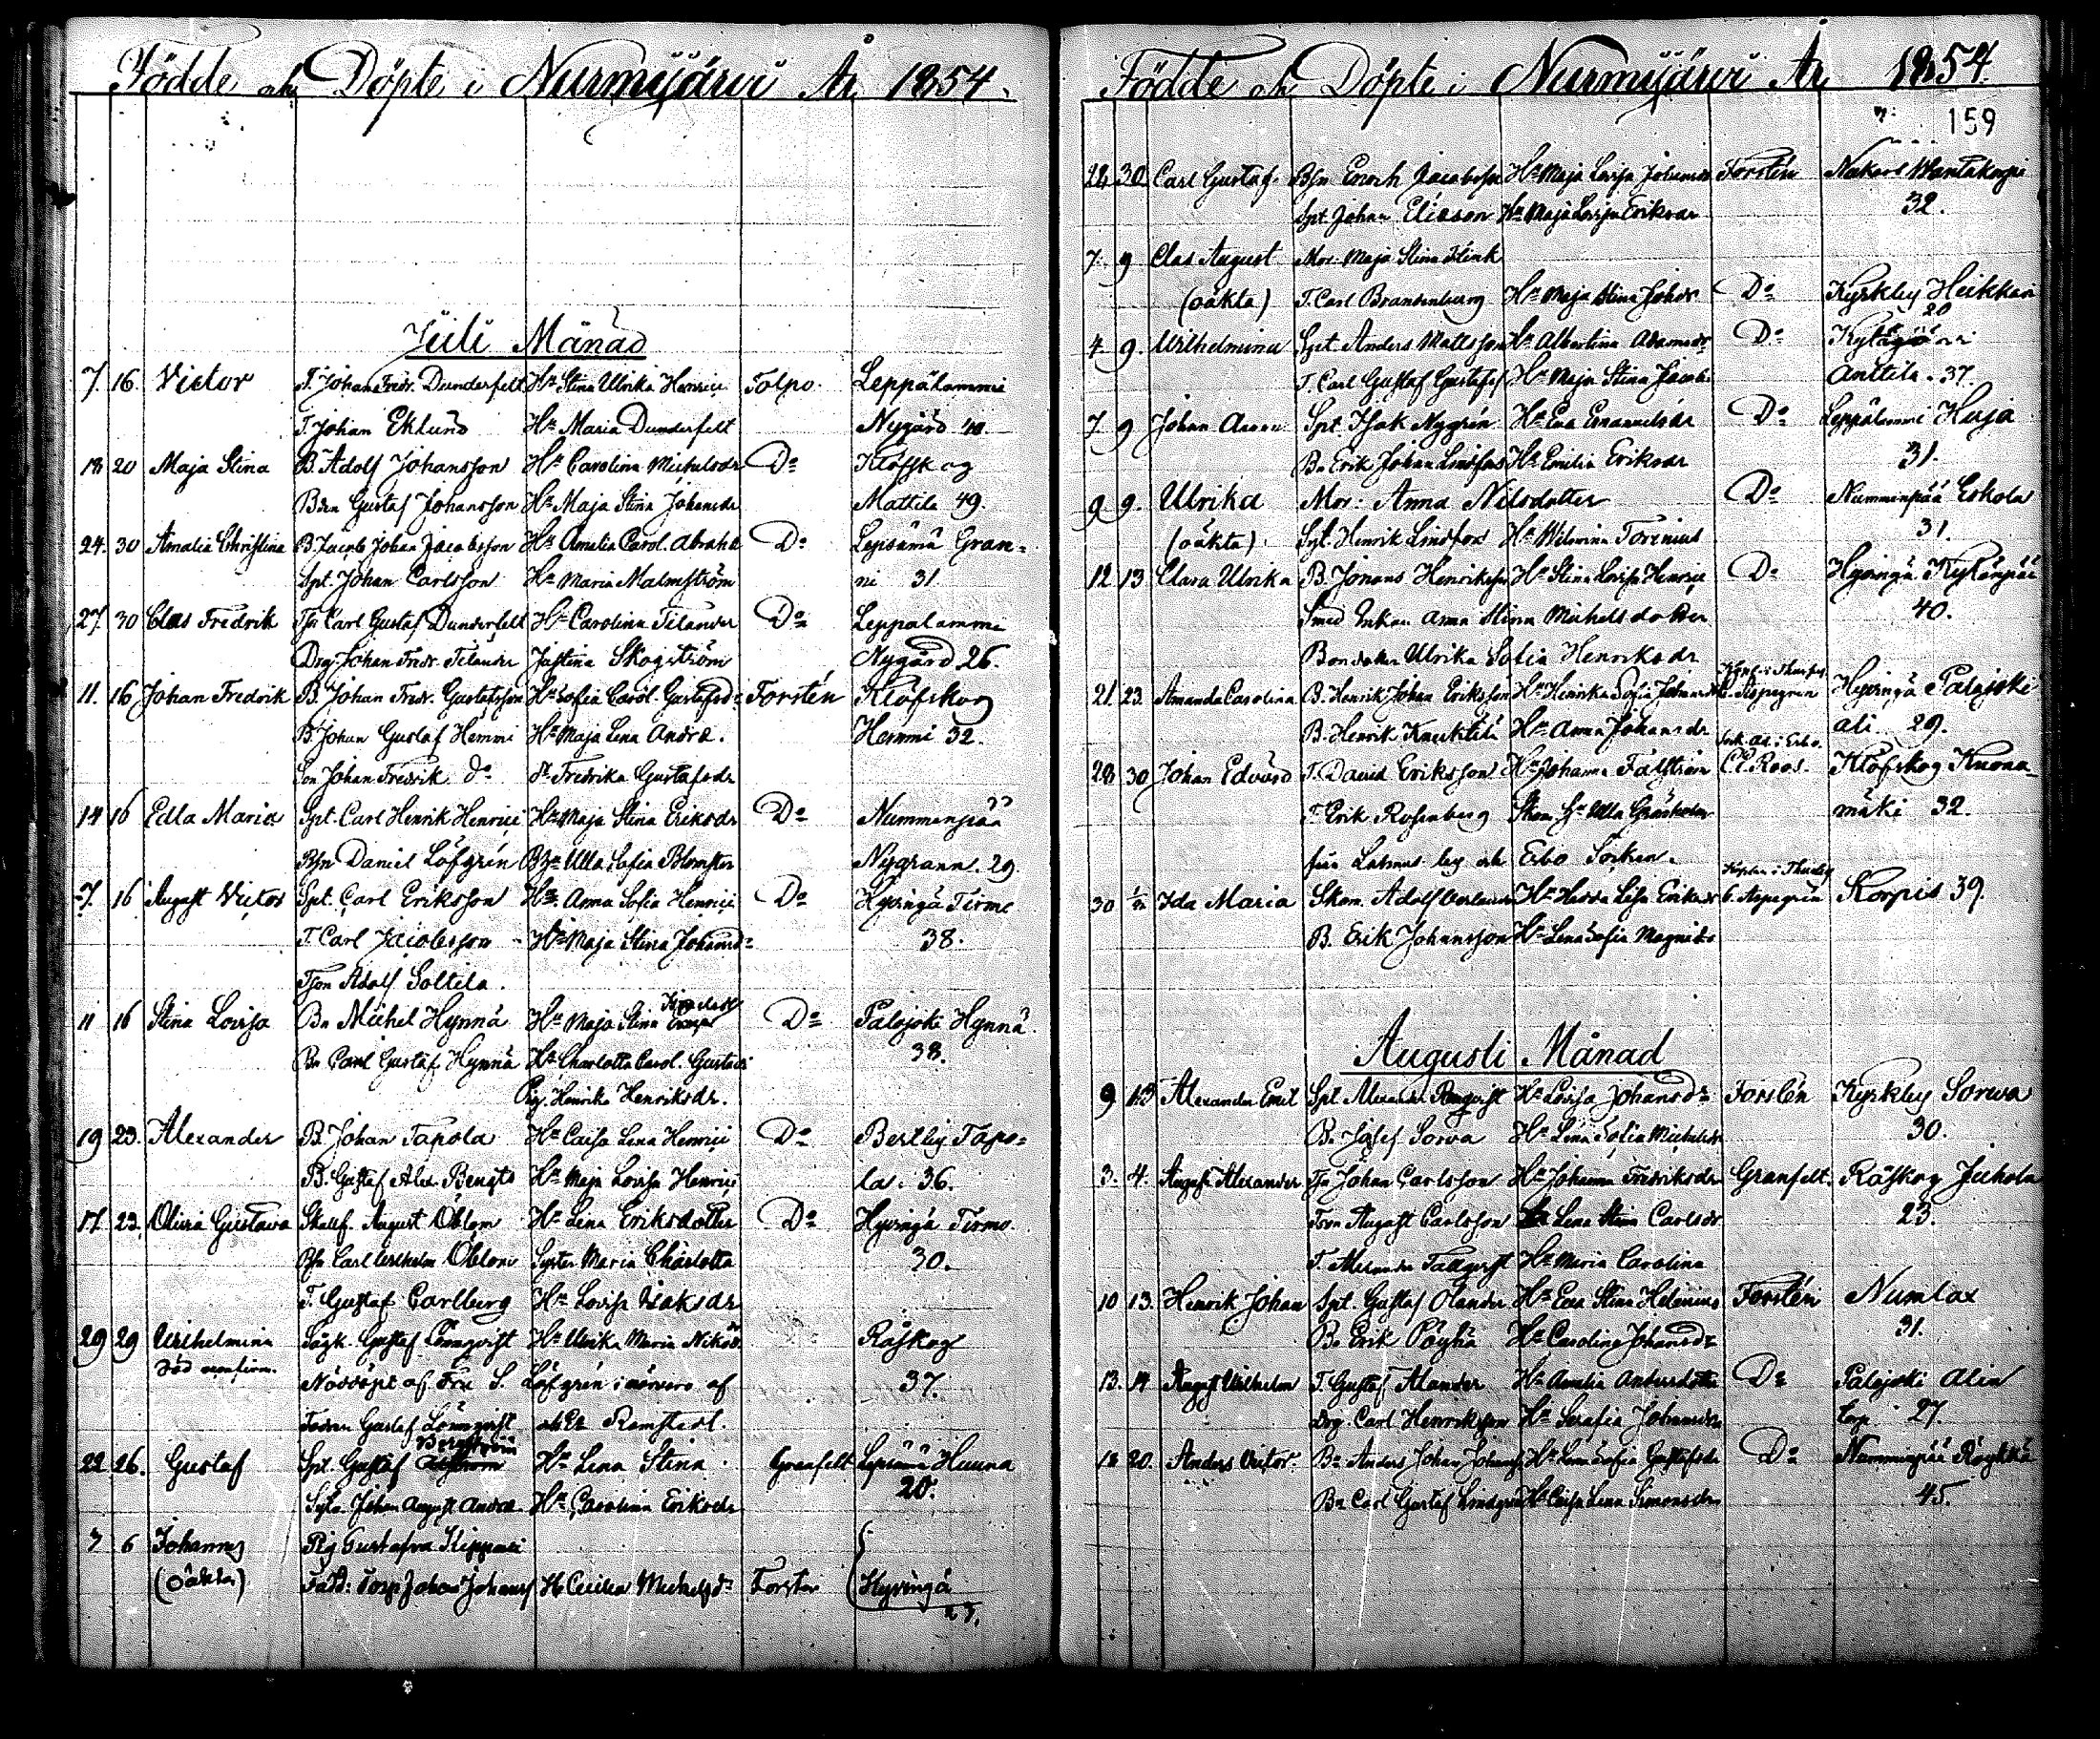 Födde och Döpte i Nurmijärvi År 1854.
Juli Månad
7. 16. Victor T. Johan Fredr. Dunderfelt Hu Stina Ulrika Henrici Tolpo. Leppälammi
T. Johan Eklund Hu Maria Dunderfelt Nygård 40.
18 20 Maja Stina B. Adolf Johansson Hu Carolina Michelsdr Do Klöfskog
Bdn Gustaf Johansson Hu Maja Stina Johansdr Mattila 49.
24. 30 Amalia Christina B. Jacob Johan Jacobsson Hu Amalia Carol. Abraha Do Lepsämä Gran-
Spt. Johan Carlsson Hu Maria Malmström ni 31.
27 30 Clas Fredrik Tsn Carl Gustaf Dunderfelt Hu Carolina Tilander Do Leppalammi
Drg. Johan Fredr. Tilander Justina Skogström Nygård 26.
11. 16 Johan Fredrik B. Johan Fredr. Gustafsson Hu Sofia Carol. Gustafsd. Forstén Klöfskog
B. Johan Gustaf Hemmi Hu Maja Lena Andrae. Hemmi 32.
Son Johan Fredrik do Fredrika Gustafsdr
14 16 Edla Maria Spt. Carl Henrik Henrici Hu Maja Stina Eriksdr Do Nummenpää
Bsn Daniel Löfgrén Ulla Sofia Blomster Nygrann. 29.
7. 16 August Victor Spt. Carl Eriksson Hu Anna Sofia Henrici Do Hyvingä Tirmo
T. Carl Jacobsson Hu Maja Stina Johansd. 38.
Tson Adolf Soltila.
11 16 Stina Lovisa Bn Michel Hynnä Hu Maja Stina Do Palojoki Hynnä
Bn Carl Gustaf Hynnä Hu Charlotta Carol. Gustaci 38.
Pig. Henrika Henriksdr.
19 23. Alexander B. Johan Tapola Hu Caisa Lena Henrici Do Bertby Tapo-
B. Gustaf Alex. Bengts Hu Maja Lovisa Henrici la. 36.
17. 23. Olivia Gustava August Öblom Hu Lena Eriksdotter Do Hyvingä Tirmo
Bsn Carl Wilhelm Öblom Syster Maria Charlotta 30.
T. Gustaf Carlberg Hu Lovisa Isaksdr
29 29 Wilhelmina Gustaf Lönnqvist Hu Ulrika Maria Röskog
Nöddöpt af Fru S. Löfgrén i närvaro af 37.
Fadren Gustaf Lönnqvist och Ramstedt.
Bergström
22 26. Gustaf Spt. Gustaf Hu Lena Stina Granfelt Lepsämä Huuna
Johan August Andrae. Hu Carolina Eriksdr 20.
7 6 Johannes Pig Gustafva
(oäkta) Fadd: Torp Johan Johans H Cecilia Michelsdr Forstén Hyvingä
23.
Födde och Döpte i Nurmijärvi År 1854.
159
30. Carl Gustaf. Bsn Enoch Jacobsson Hu Maja Lovisa Johansdr Forstén Nukari Wantakorpi
Spt. Johan Eliasson Hu Maja Lovisa Eriksdr 32.
7. 9 Clas August Mor. Maja Stina Flink
(oäkta) T. Carl Brandenburg Hu Maja Stina Johdr Do Kyrkby Heikkari
20
4. 9. Wilhelmina Spt. Anders Mattsson Hu Albertina Adamsdr Do
T. Carl Gustaf Gustafss Hu Maja Stina Jacobs Anttila. 37.
7 9 Johan Spt. Isak Nygrén Hu Eva Emanuelsdr Do Leppälammi Haja
Bn Erik Johan Lindfors Hu Emilia Eriksdr 31.
9 9. Ulrika Mor. Anna Nilsdotter Do Nummenpää Eskola
(oäkta) Henrik Lindfors Hu Wilmina Forenius 31.
12 13 Clara Ulrika B. Jonans Henriksson Hu Stina Lovisa Henrici Do Hyvingä Kytänpää
Smed Enkan Anna Stina Michelsdotter 40.
Bondotter Ulrika Sofia Henriksdr
21. 23. Amanda Carolina B. Henrik Johan Eriksson Hu Henrika Sofia Johansdr Aspegren Hyvingä Palojoki
B. Henrik Knuktila Hu Anna Johansdr ali 29.
28 30 Johan Edvard T. David Eriksson Hu Johanna Fallström C.E. Roos. Klöfskog Kuona-
T. Erik Rosenberg Ulla Gräsholm mäki 32.
från Lahnus by och Esbo Socken.
30 Ida Maria Skom. Adolf Hu Hedda Lisa Eriksdr C. Aspegrén Korpis 39.
B. Erik Johansson Hu Lena Sofia Magnids
Augusti Månad
9 13 Alexander Emil Spt Alexander Hu Lovisa Johansdr Forstén Kyrkby Sorva
Bn Josef Sorva Hu Lena Sofia Michelsdr 30.
3. 4. August Alexander Tsn Johan Carlsson Hu Johanna Fredriksdr Granfelt. Röskog Juhola
August Carlsson Lena Stina Carlsdr 23.
T. Alexander Tallqvist Hu Maria Carolina
10 13. Henrik Johan Spt. Gustaf Olander Hu Eva Stina Helenius Forstén Numlax
Bn Erik Pöyhiä Hu Carolina Johansdr 31.
13. 14 August Wilhelm T. Gustaf Alander Hu Amalia Andersdotter Do Palojoki Alin
Drg. Carl Henriksson Hu Serafia Johansdr torp 27.
18 20. Anders Victor. Bn Anders Johan Johans Hu Lena Sofia Gustafsdr Do Nummenpää
Bn Carl Gustaf Lindgren Hu Caisa Lena Simonsdr 45.